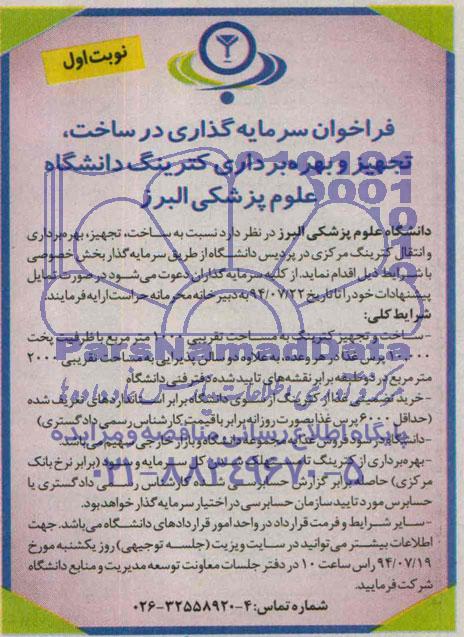 نوبت اول
فراخوان سرمایه گذاری در ساخت،
تجهیز و بهره‌برداری کترینگ دانشگاه
علوم پزشکی البرز
دانشگاه علوم پزشکی البرز در نظر دارد نسبت به ساخت، تجهیز، بهره‌برداری
و انتقال کترینگ مرکزی در پردیس دانشگاه از طریق سرمایه‌گذار بخش خصوصی
با شرایط ذیل اقدام نماید. از کلیه سرمایه‌گذاران دعوت می‌شود در صورت تمایل
پیشنهادات خود را تا تاریخ ۹۴/۰۷/۲۲ به دبیرخانه محرمانه حراست ارایه فرمایند.
شرایط کلی:
- ساخت و تجهیز کترینگ به مساحت تقریبی متر مربع با ظرفیت پخت
۱۰،۰۰۰ پرس غذا در هر وعده، به علاوه دو سالن پذیرایی به مساحت تقریبی ۲۰۰۰
متر مربع در دو طبقه برابر نقشه‌های تایید شده دفتر فنی دانشگاه
- خرید تضمینی غذا از کترینگ از سوی دانشگاه برابر استانداردهای تعریف شده
(حداقل ۶۰۰۰ پرس غذا بصورت روزانه برابر با قیمت کارشناس رسمی دادگستری)
- دانشگاه در سود فروش غذا به مجموعه دانشگاه و بازار خارجی سهیم می‌باشد.
- بهره‌برداری از کترینگ تا سرمایه و سود (برابر نرخ بانک
مرکزی) حاصله برابر گزارش حسابرسی شده کارشناس رسمی دادگستری یا
حسابرس مورد تایید سازمان حسابرسی در اختیار سرمایه گذار خواهد بود.
- سایر شرایط و فرمت قرارداد در واحد امور قراردادهای دانشگاه می‌باشد. جهت
اطلاعات بیشتر می‌توانید در سایت ویزیت (جلسه توجیهی) روز یکشنبه مورخ
۹۴/۰۷/۱۹ راس ساعت ۱۰ در دفتر جلسات معاونت توسعه مدیریت و منابع دانشگاه
شرکت فرمایید.
شماره تماس: ۴-۳۲۵۵۸۹۲۰-۰۲۶
ParsNamadData
پایگاه اطلاع رسانی مناقصه و مزایده
۰۲۱-۸۸۳۴۹۶۷۰-۵